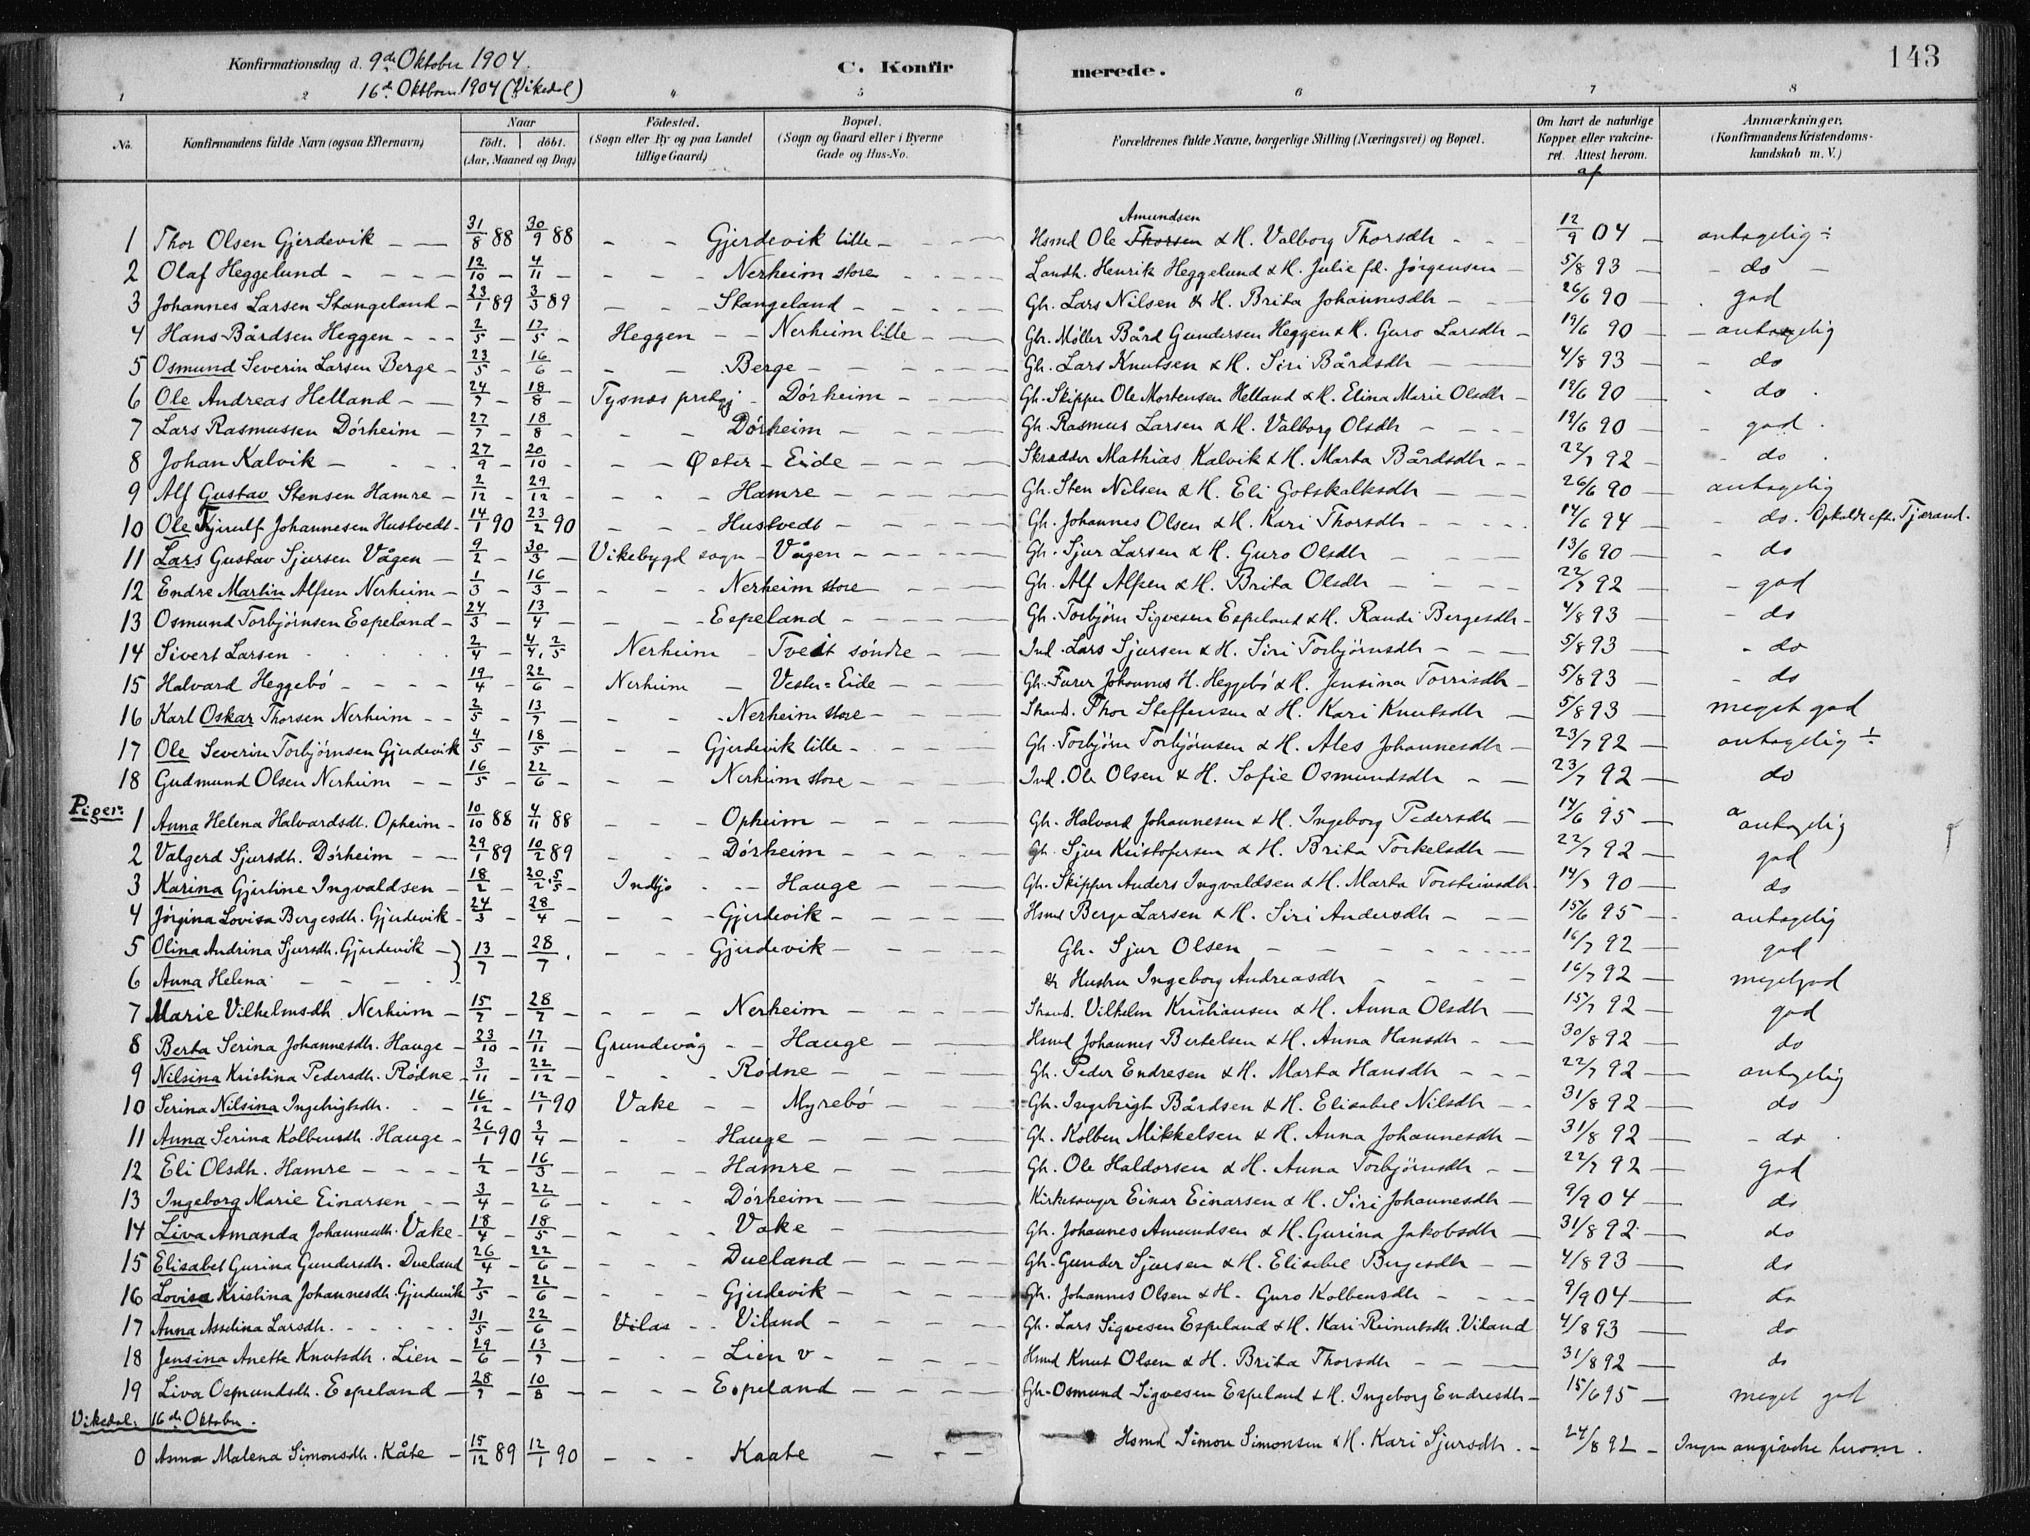 143
Konfirmationsdag d. 9de Oktober 1904.
16de Oktbr. 1904 (Vikedal)
C. Konfirmerede.
1 2 4 5 6 7 8
No. Konfirmandens fulde Navn (ogsaa Efternavn) Naar födt. döbt. (Aar, Maaned og Dag) Födested. (Sogn eller By og paa Landet tillige Gaard) Bopæl. (Sogn og Gaard eller i Byerne Gade og Hus-No. Forældrenes fulde Navne, borgerlige Stilling (Næringsvei) og Bopæl. Om havt de naturlige Kopper eller vakcineret. Attest herom. Anmærkninger, (Konfirmandens Kristendomskundskab m. V.)
af
1 Thor Olsen Gjerdevik 31/8 88 30/9 88 - - Gjerdevik lille Hsmd Ole Thorsen Amundsen & H. Valborg Thorsdtr 12/9 04 antagelig ÷
2 Olaf Heggelund 12/10 - 4/11 - - - Nerheim store Landh. Henrik Heggelund & H. Julie fd. Jørgensen 5/8 93 do
3 Johannes Larsen Stangeland 23/1 89 3/3 89 - - Stangeland Gb. Lars Nilsen & H. Brita Johannesdtr 26/6 90 god
4 Hans Bårdsen Heggen 2/5 - 17/5 - Heggen - Nerheim lille Gbr. Møller Bård Gundersen Heggen & H. Guro Larsdtr 19/6 90 antagelig
5 Osmund Severin Larsen Berge 23/5 - 16/6 - - - Berge Gb. Lars Knutsen & H. Siri Bårdsdtr 4/8 93 do
6 Ole Andreas Helland 24/7 - 18/8 - Tysnæs prstgj - Dörheim Gb. Skipper Ole Mortensen Helland & H. Elina Marie Olsdtr 19/6 90 do
7 Lars Rasmussen Dörheim 27/7 - 18/8 - - - Dörheim Gb. Rasmus Larsen & H. Valborg Olsdtr 19/6 90 god
8 Johan Kalvik 27/9 - 20/10 - - - Øster-Eide Skrædder Mathias Kalvik & H. Marta Bårdsdtr 22/7 92 do
9 Alf Gustav Stensen Hamre 2/12 - 29/12 - - - Hamre Gb. Sten Nilsen & H. Eli Gotskalksdtr 26/6 90 antagelig
10 Ole Tjerulf Johannesen Hustvedt 14/1 90 23/2 90 - - Hustvedt Gb. Johannes Olsen & H. Kari Thorsdtr 14/6 94 do. Opkaldt eft. Tjærand.
11 Lars Gustav Sjursen Vågen 9/2 - 30/3 - Vikebygd sogn - Vågen Gb. Sjur Larsen & H. Guro Olsdtr 13/6 90 do
12 Endre Martin Alfsen Nerheim 1/3 - 16/3 - - - Nerheim store Gb. Alf Alfsen & H. Brita Olsdtr 22/7 92 god
13 Osmund Torbjørnsen Espeland 24/3 - 13/4 - - - Espeland Gb. Torbjørn Sigvesen Espeland & H. Randi Bergesdtr 4/8 93 do
14 Sivert Larsen 2/4 - 4/4. 2/5 Nerheim - Tveit søndre Ind. Lars Sjursen & H. Siri Torbjørnsdtr 5/8 93 do
15 Halvard Heggebö 19/4 - 22/6 - Nerheim - Vestre-Eide Gb. Furer Johannes H. Heggebö & H. Jensina Torrisdtr 5/8 93 do
16 Karl Oskar Thorsen Nerheim 2/5 - 13/7 - - - Nerheim store Strands. Thor Steffensen & H. Kari Knutsdtr 5/8 93 meget god
17 Ole Severin Torbjørnsen Gjerdevik 4/5 - 18/5 - - - Gjerdevik lille Gb. Torbjørn Torbjørnsen & H. Ales Johannesdtr 23/7 92 antagelig ÷
18 Gudmund Olsen Nerheim 16/5 - 22/6 - - - Nerheim store Ind. Ole Olsen & H. Sofie Osmundsdtr 23/7 92 do
Piger:
1 Anna Helena Halvardsdt. Opheim 10/10 88 4/11 88 - - Opheim Gb. Halvard Johannesen & H. Ingeborg Pedersdtr 14/6 95 antagelig
2 Valgerd Sjursdtr. Dörheim 29/1 89 10/2 89 - - Dörheim Gb. Sjur Kristofersen & H. Brita Torkelsdtr 22/7 92 god
3 Karina Gjertine Ingvaldsen 18/2 - 20/2. 5/5 - Indbjo - - Hauge Gb. Skipper Anders Ingvaldsen & H. Marta Torsteinsdtr 14/7 90 do
4 Jørgina Lovisa Bergesdtr. Gjerdevik 24/3 - 28/4 - - Gjerdevik Hsmd Berge Larsen & H. Siri Andersdtr 15/6 95 antagelig
5 Olina Andrina Sjursdtr. Gjerdevik } 13/7 - 28/7 - - Gjerdevik Gb. Sjur Olsen 16/7 92 god
6 Anna Helena & Hustru Ingeborg Andreasdtr 16/7 92 megetgod
7 Marie Vilhelmsdtr Nerheim 15/7 - 28/7 - - - Nerheim Strands. Vilhelm Kristiansen & H. Anna Olsdtr 15/7 92 god
8 Berta Serina Johannesdtr. Hauge 23/10 - 17/11 - Grundevåg - Hauge Hsmd Johannes Bertelsen & H. Anna Hansdtr 30/8 92 do
9 Nilsina Kristina Pedersdtr. Rödne 3/11 - 22/12 - - - Rödne Gb. Peder Endresen & H. Marta Hansdtr 22/7 92 antagelig
10 Serina Nilsina Ingebrigtsdtr. 16/12 - 12/1 90 Vake - Myrebö Gb. Ingebrigt Bårdsen & H. Elisabet Nilsdtr 31/8 92 do
11 Anna Serina Kolbensdtr. Hauge 26/1 90 3/4 - - - Hauge Gb. Kolben Mikkelsen & H. Anna Johannesdtr 31/8 92 do
12 Eli Olsdtr. Hamre 1/2 - 16/3 - - - Hamre Gb. Ole Haldorsen & H. Anna Torbjørnsdtr 22/7 92 god
13 Ingeborg Marie Einarsen 3/4 - 22/6 - - - Dörheim Kirkesanger Einar Einarsen & H. Siri Johannesdtr 9/9 04 do
14 Liva Amanda Johannesdtr. Vake 18/4 - 18/5 - - - Vake Gb. Johannes Amundsen & H. Gurina Jakobsdtr 31/8 92 do
15 Elisabet Gurina Gundersdtr. Dueland 26/4 - 22/6 - - - Dueland Gb. Gunder Sjursen & H. Elisabet Bergesdtr 4/8 93 do
16 Lovise Kristina Johannesdtr. Gjerdevik 7/5 - 22/6 - - - Gjerdevik Gb. Johannes Olsen & H. Guro Kolbensdtr 9/9 04 do
17 Anna Asselina Larsdtr. 31/5 - 22/6 - Vilas - Viland Gb. Lars Sigvesen Espeland & H. Kari Reinertsdtr. Viland 4/8 93 do
18 Jensina Anette Knutsdtr. Lien 29/6 - 13/7 - - - Lien v Hsmd Knut Olsen & H. Brita Thorsdtr 31/8 92 do
19 Liva Osmundsdtr. Espeland 28/7 - 10/8 - - - Espeland Gb. Osmund Sigvesen Espeland & H. Ingeborg Endresdtr 15/6 95 meget god
Vikedal: 16de Oktober.
0 Anna Malena Simonsdtr. Kåte 15/12 89 12/1 90 - - Kaate Hsmd Simon Simonsen & H. Kari Sjursdtr. 24/8 92 Ingen angivelse herom.